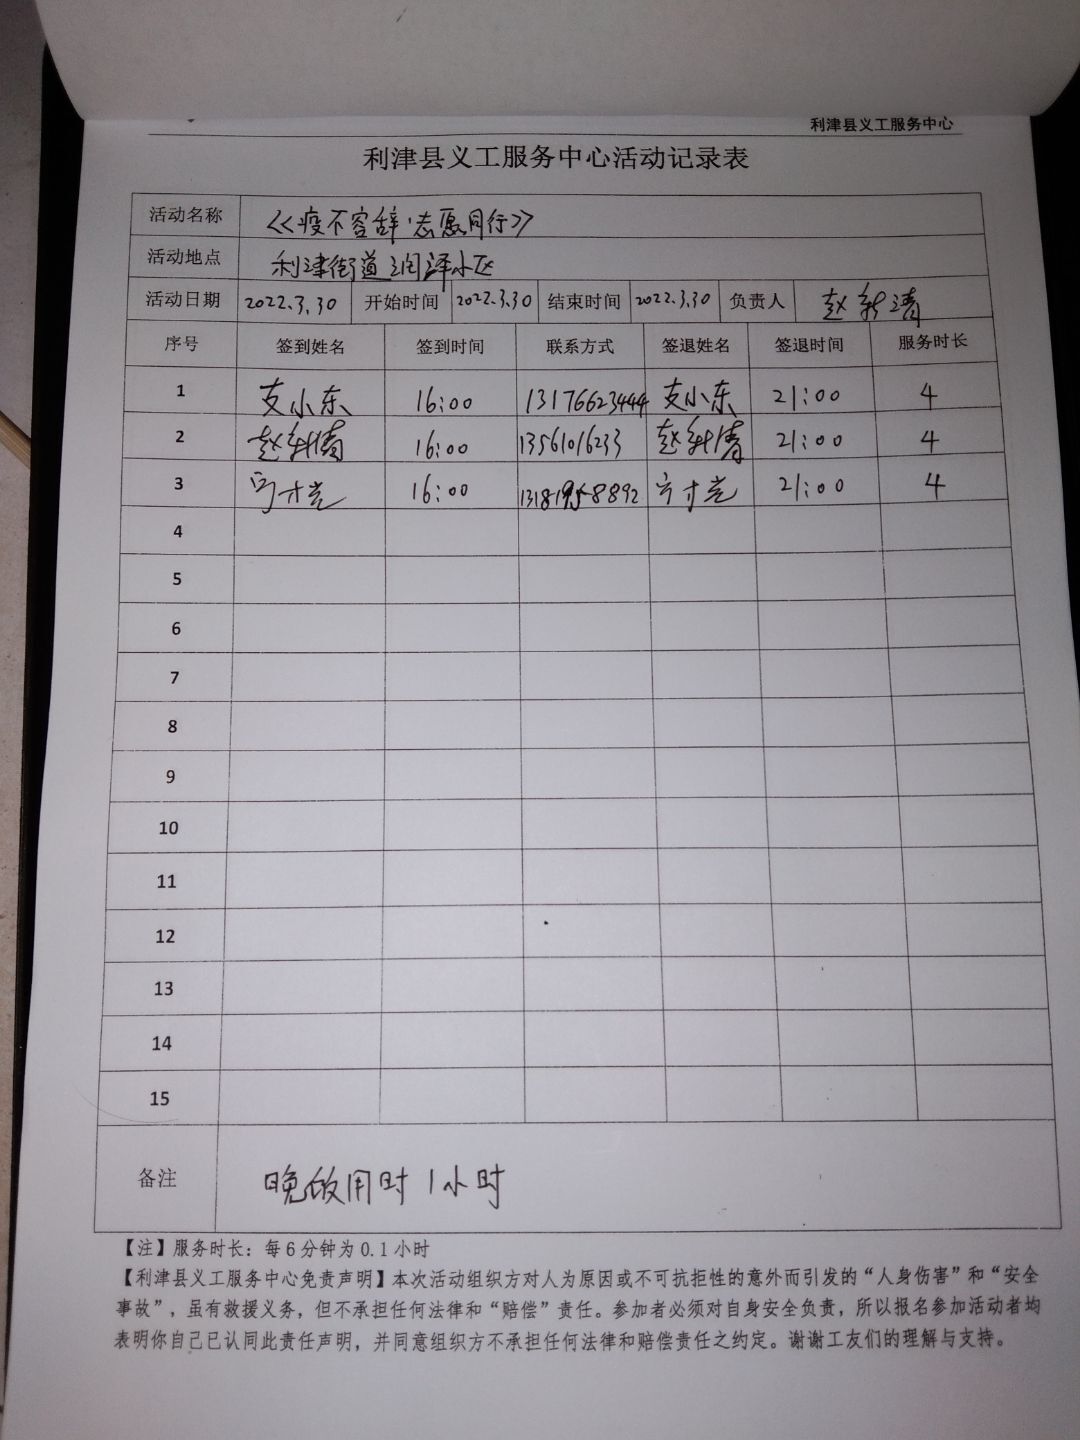 利津县义工服务中心
利津县义工服务中心活动记录表
活动名称 《疫不容辞·志愿同行》
活动地点 利津街道润泽小区
活动日期 2022.3.30 开始时间 2022.3.30 结束时间 2022.3.30 负责人 赵新清
序号 签到姓名 签到时间 联系方式 签退姓名 签退时间 服务时长
1 支小东 16:00 13176623444 支小东 21:00 4
2 赵新清 16:00 13561016233 赵新清 21:00 4
3 16:00 13181958892 21:00 4
4
5
6
7
8
9
10
11
12
13
14
15
备注 晚饭用时1小时
【注】服务时长：每6分钟为0.1小时
【利津县义工服务中心免责声明】本次活动组织方对人为原因或不可抗拒性的意外而引发的“人身伤害”和“安全
事故”，虽有救援义务，但不承担任何法律和“赔偿”责任。参加者必须对自身安全负责，所以报名参加活动者均
表明你自己已认同此责任声明，并同意组织方不承担任何法律和赔偿责任之约定。谢谢工友们的理解与支持。